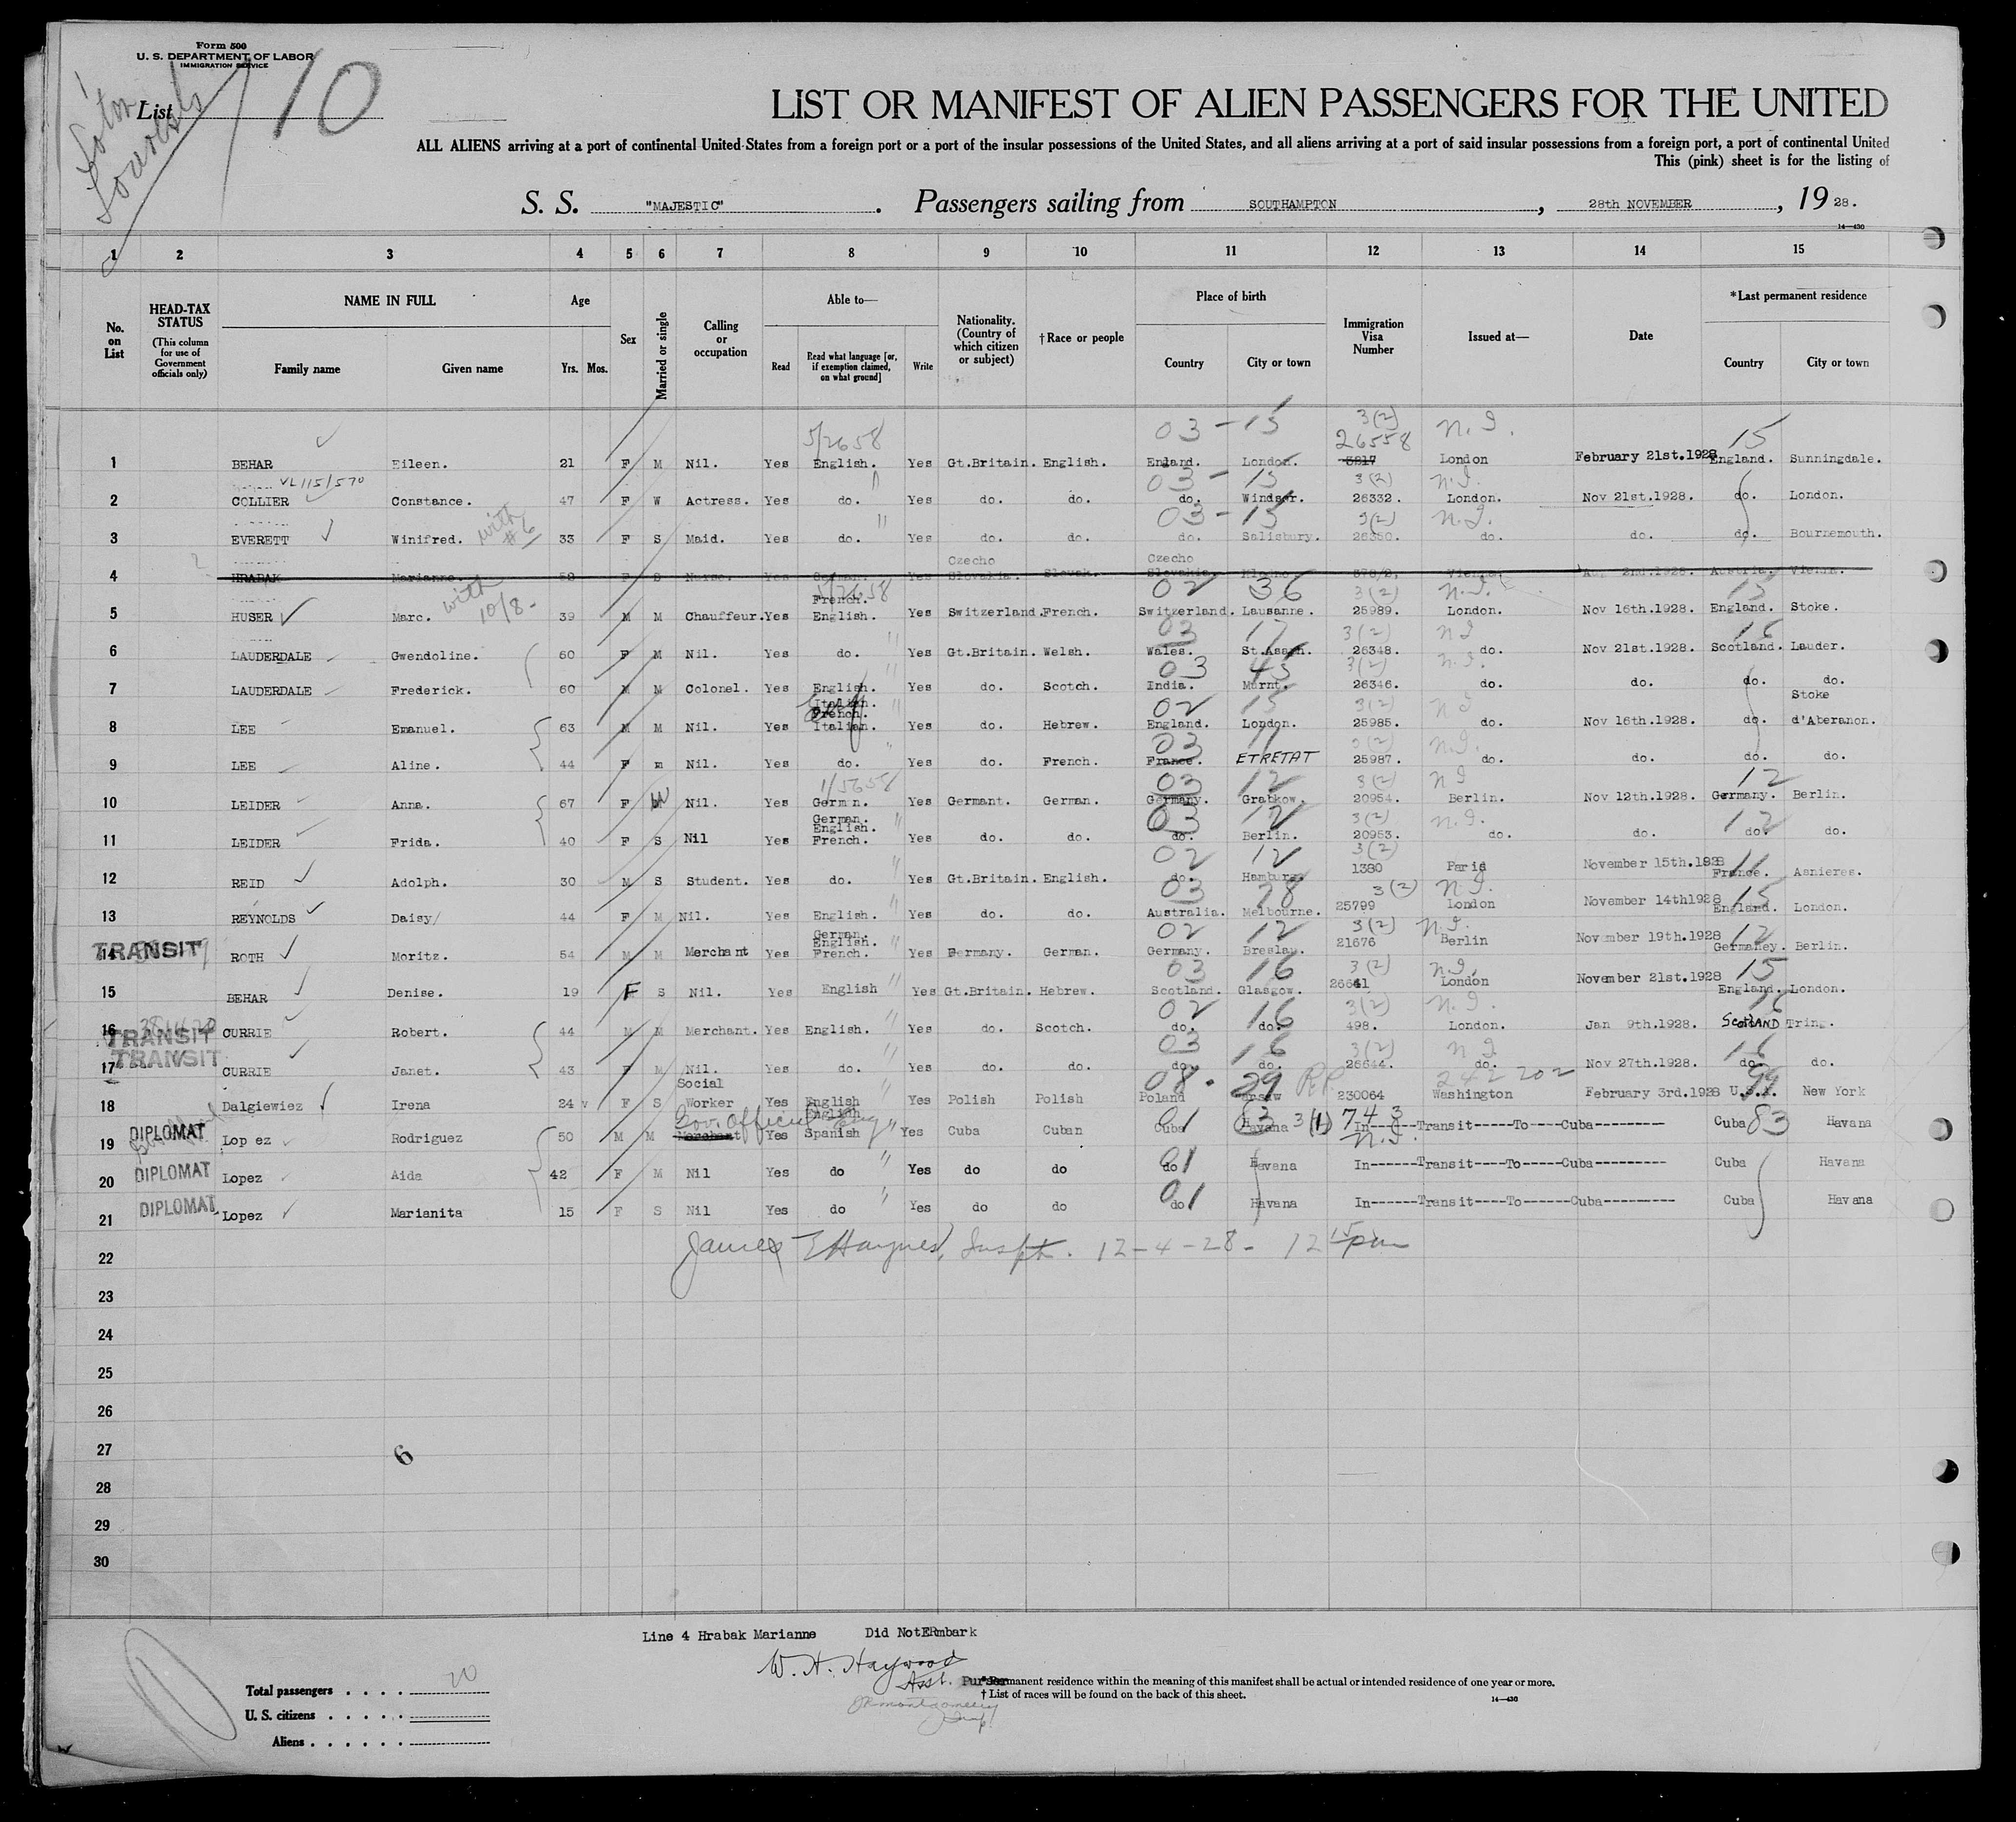 Form 500
U. S. DEPARTMENT OF LABOR
IMMIGRATION SERVICE
List 10
LIST OR MANIFEST OF ALIEN PASSENGERS FOR THE UNITED
ALL ALIENS arriving at a port of continental United States from a foreign port or a port of the insular possessions of the United States, and all aliens arriving at a port of said insular possessions from a foreign port, a port of continental United
This (pink) sheet is for the listing of
S. S. "MAJESTIC". Passengers sailing from SOUTHAMPTON, 28th NOVEMBER, 19 28.
14—430
1 2 3 4 5 6 7 8 9 10 11 12 13 14 15
No. on List
HEAD-TAX STATUS (This column for use of Government officials only)
NAME IN FULL Family name Given name
Age Yrs. Mos.
Sex
Married or single
Calling or occupation
Able to— Read Read what language [or, if exemption claimed, on what ground] Write
Nationality. (Country of which citizen or subject)
†Race or people
Place of birth Country City or town
Immigration Visa Number
Issued at—
Date
*Last permanent residence Country City or town
5/2658 03 - 15 3(2) 26558 N.I. 15
1 BEHAR Eileen. 21 F M Nil. Yes English. Yes Gt.Britain. English. England. London. 5217 London February 21st.1928 England. Sunningdale.
VL115/570 03 - 15 3(2) N.I.
2 COLLIER Constance. 47 F W Actress. Yes do. Yes do. do. do. Windsor. 26332. London. Nov 21st.1928. do. London.
with #6 03 - 15 3(2) N.I.
3 EVERETT Winifred. 33 F S Maid. Yes do. Yes do. do. do. Salisbury. 26350. do. do. do. Bournemouth.
Czecho Czecho
4 HRABAK Marianne. 52 F S Nurse. Yes German. Yes Slovakia. Slovak. Slovakia. Vienna. Aug 2nd.1928. Austria. Vienna.
with 10/8- French. 02 36 3(2) N.I. 15
5 HUSER Marc. 39 M M Chauffeur. Yes English. Yes Switzerland. French. Switzerland. Lausanne. 25989. London. Nov 16th.1928. England. Stoke.
03 17 3(2) N I 16
6 LAUDERDALE Gwendoline. 60 F M Nil. Yes do. Yes Gt.Britain. Welsh. Wales. St.Asaph. 26348. do. Nov 21st.1928. Scotland. Lauder.
03 45 3(2) N.I.
7 LAUDERDALE Frederick. 60 M M Colonel. Yes English. Yes do. Scotch. India. Murnt. 26346. do. do. do. do.
Italian. French. 02 15 3(2) N I Stoke
8 LEE Emanuel. 63 M M Nil. Yes Italian. Yes do. Hebrew. England. London. 25985. do. Nov 16th.1928. do. d'Aberanon.
03 11 3(2) N.I.
9 LEE Aline. 44 F m Nil. Yes do. Yes do. French. France. ETRETAT 25987. do. do. do. do.
1/5658 03 12 3(2) N I 12
10 LEIDER Anna. 67 F W Nil. Yes Germ n. Yes Germant. German. Germany. Grabkow. 20954. Berlin. Nov 12th.1928. Germany. Berlin.
German. English. 03 12 3(2) N.I. 12
11 LEIDER Frida. 40 F S Nil Yes French. Yes do. do. do. Berlin. 20953. do. do. do. do.
02 12 3(2) 11
12 REID Adolph. 30 M S Student. Yes do. Yes Gt.Britain. English. do. Hamburg. 1380 Paris November 15th.1928 France. Asnieres.
03 78 3(2) N.I. 15
13 REYNOLDS Daisy/ 44 F M Nil. Yes English. Yes do. do. Australia. Melbourne. 25799 London November 14th1928 England. London.
German. English. 02 12 3(2) N.I. 12
14 TRANSIT ROTH Moritz. 54 M M Merchant Yes French. Yes Germany. German. Germany. Breslau. 21676 Berlin November 19th.1928 Germaney. Berlin.
03 16 3(2) N.I. 15
15 BEHAR Denise. 19 F S Nil. Yes English Yes Gt.Britain. Hebrew. Scotland. Glasgow. 26641 London November 21st.1928 England. London.
02 16 3(2) N.I. 16
16 TRANSIT CURRIE Robert. 44 M M Merchant. Yes English. Yes do. Scotch. do. do. 498. London. Jan 9th.1928. ScotLAND Tring.
TRANSIT 03 16 3(2) N I 16
17 CURRIE Janet. 43 F M Nil. Yes do. Yes do. do. do. do. 26644. do. Nov 27th.1928. do. do.
Social 08 - 29 P.P. 242 202 99
18 Dalgiewiez Irena 24 F S Worker Yes English Yes Polish Polish Poland Warsaw 230064 Washington February 3rd.1928 U.S.A. New York
Gov. Official English Eng 01 83 3(1) 743 N.I. 83
19 DIPLOMAT Lop ez Rodriguez 50 M M Merchant Yes Spanish Yes Cuba Cuban Cuba Havana In------Transit-----To----Cuba--------- Cuba Havana
01
20 DIPLOMAT Lopez Aida 42 F M Nil Yes do Yes do do do Havana In------Transit----To-----Cuba--------- Cuba Havana
01
21 DIPLOMAT Lopez Marianita 15 F S Nil Yes do Yes do do do Havana In------Transit----To------Cuba---------- Cuba Havana
22 James E Haynes, Inspt. 12-4-28- 12 15 pm
23
24
25
26
27
6
28
29
30
Line 4 Hrabak Marianne Did Not Embark
W. H. Haywood
Asst. Purser
Total passengers . . . . 20
U. S. citizens . . . . .
Aliens . . . . . .
*Permanent residence within the meaning of this manifest shall be actual or intended residence of one year or more.
†List of races will be found on the back of this sheet.
14—430